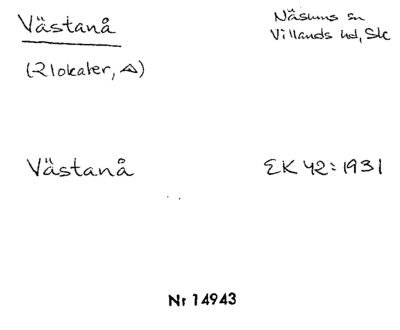 Västanå
Näsums sn
Villands hd, Sk
(2 lokaler, )
Västanå
EK 42:1931
Nr 14943